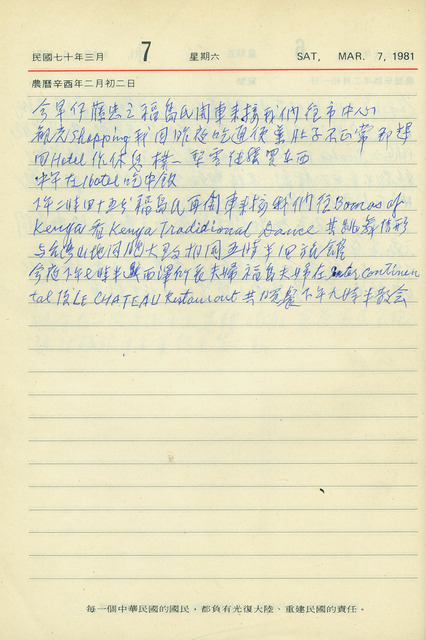 民國七十年三月 7 星期六 SAT, MAR. 7, 1981
農曆辛酉年二月初二日
今早伊藤忠之福島氏開車來接我們往市中心
觀光Shopping我因昨夜吃過便當肚子不正常即趕
回Hotel作休息 繼續買東西
中午在Hotel吃中飯
下午2時四十五分福島氏再開車來接我們往Bomas of
Kenya看Kenya Traditional Dance 其跳舞情形
与台灣山地同胞大致相同五時半回旅館
今夜下午七時半 西澤所長夫婦福島夫婦在Inter continen
tal 後LE CHATEAU Restaurant 共晚餐下午九時半散会
每一個中華民國的國民，都負有光復大陸、重建民國的責任。